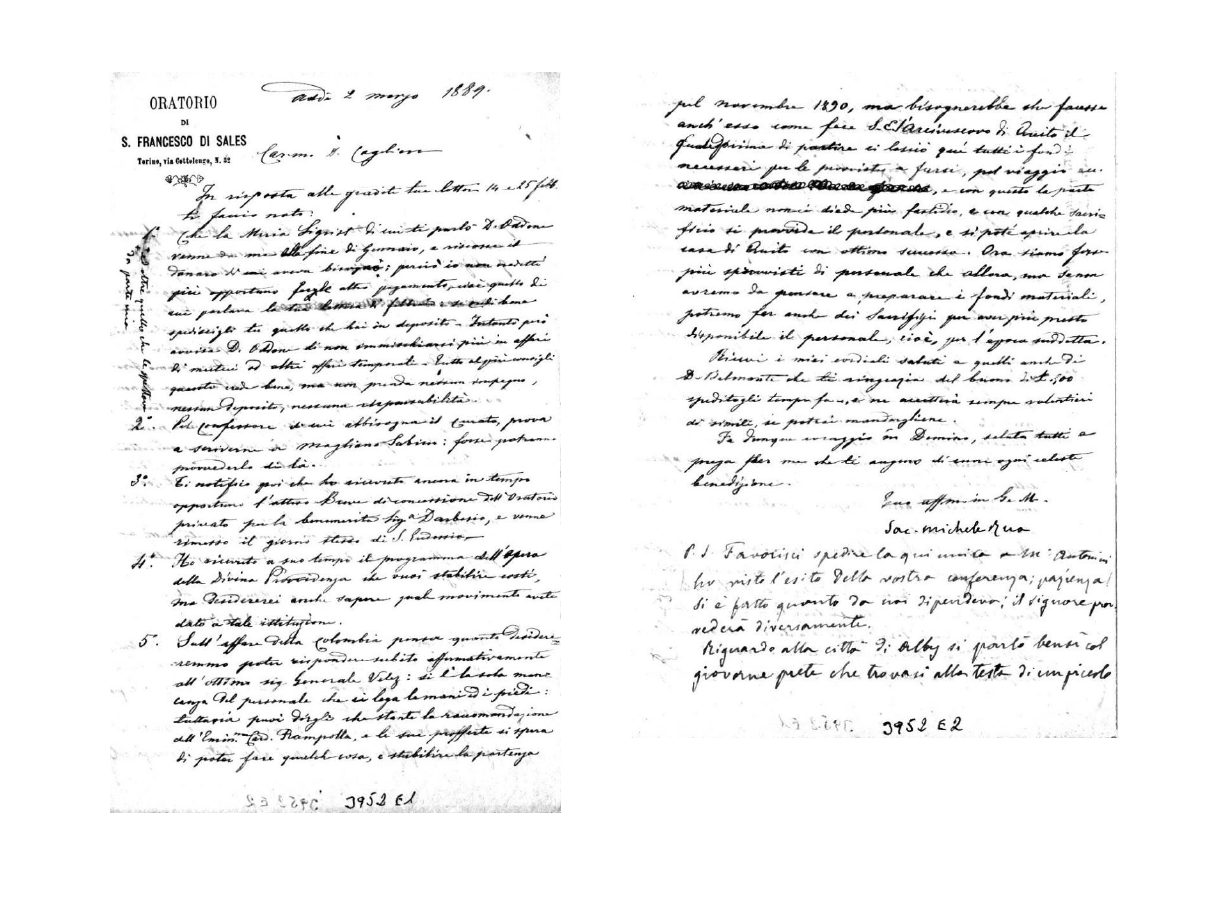 ORATORIO
DI
S. FRANCESCO DI SALES
Torino, via Cottolengo, N. 32
Addì 2 marzo 1889.
Car.mo D. Cagliero
In risposta alle gradite tue lettere 14 e 25 febb.
ti faccio noto:
1. Che la Maria Sigrist di cui ti parlò D. Oddone
venne da me alla fine di Gennaio, e riscosse il
danaro di cui aveva bisogno; perciò io non credetti
più opportuno fargli altro pagamento, essi quello di
cui parlava la tua lettera
spediscigli tu quello che hai in deposito. Intanto però
avvisa D. Oddone di non immischiarsi più in affari
di mestieri od altri affari temporali. Tutto al più consigli
quando vede bene, ma non prenda nessun impegno,
nessun deposito, nessuna responsabilità.
ed oltre quello che ti spettava
da parte mia
2. Pel Confessore di cui abbisogna il Curato, prova
a scriverne a Magliano Sabino: forse potranno
provvederlo di là.
3. Ti notifico poi che ho ricevuto ancora in tempo
opportuno l'atteso Breve di concessione dell'Oratorio
privato per la benemerita Sig.a Darbesio, e venne
rimesso il giorno stesso di S. Eudossia
4. Ho ricevuto a suo tempo il programma dell'Opera
della Divina Provvidenza che vuoi stabilire costì,
ma desidererei anche sapere qual movimento avete
dato a tale istituzione.
5. Sull'affare della Colombia pensa quanto deside-
remmo poter rispondere subito affermativamente
all'ottimo sig. Generale Velez: si è la sola man-
canza del personale che ci lega le mani ed i piedi:
tuttavia puoi dirgli che stante la raccomandazione
dell'Emin.mo Card. Rampolla, e le sue profferte si spera
di poter fare qualche cosa, e stabilire la partenza
3952 E1
pel novembre 1890, ma bisognerebbe che facesse
anch'esso come fece S. E. l'Arcivescovo di Quito il
quale prima di partire ci lasciò qui tutti i fondi
necessari per le provviste a farsi, pel viaggio ecc.
, e con questo la parte
materiale non ci diede più fastidio, e con qualche sacri-
ficio si provvide il personale, e si potè aprire la
casa di Quito con ottimo successo. Ora siamo forse
più sprovvisti di personale che allora, ma se non
avremo da pensare a preparare i fondi materiali,
potremo far anche dei Sacrifizi per aver più presto
disponibile il personale, cioè, per l'epoca suddetta.
Ricevi i miei cordiali saluti e quelli anche di
D. Belmonte che ti ringrazia del buono di £. 500
speditogli tempo fa, e ne accetterà sempre volentieri
di simili, se potrai mandargliene.
Fa dunque coraggio in Domino, saluta tutti e
prega per me che ti auguro di cuore ogni celeste
benedizione.
Tuo aff.mo in G. e M.
Sac. Michele Rua
P. S. Favorisci spedire la qui unita a M.r Antonini
ho visto l'esito della vostra conferenza; pazienza!
Si è fatto quanto da noi dipendeva; il Signore prov-
vederà diversamente.
Riguardo alla città di Alby si parlò bensì col
giovane prete che trovasi alla testa di un piccolo
3952 E2